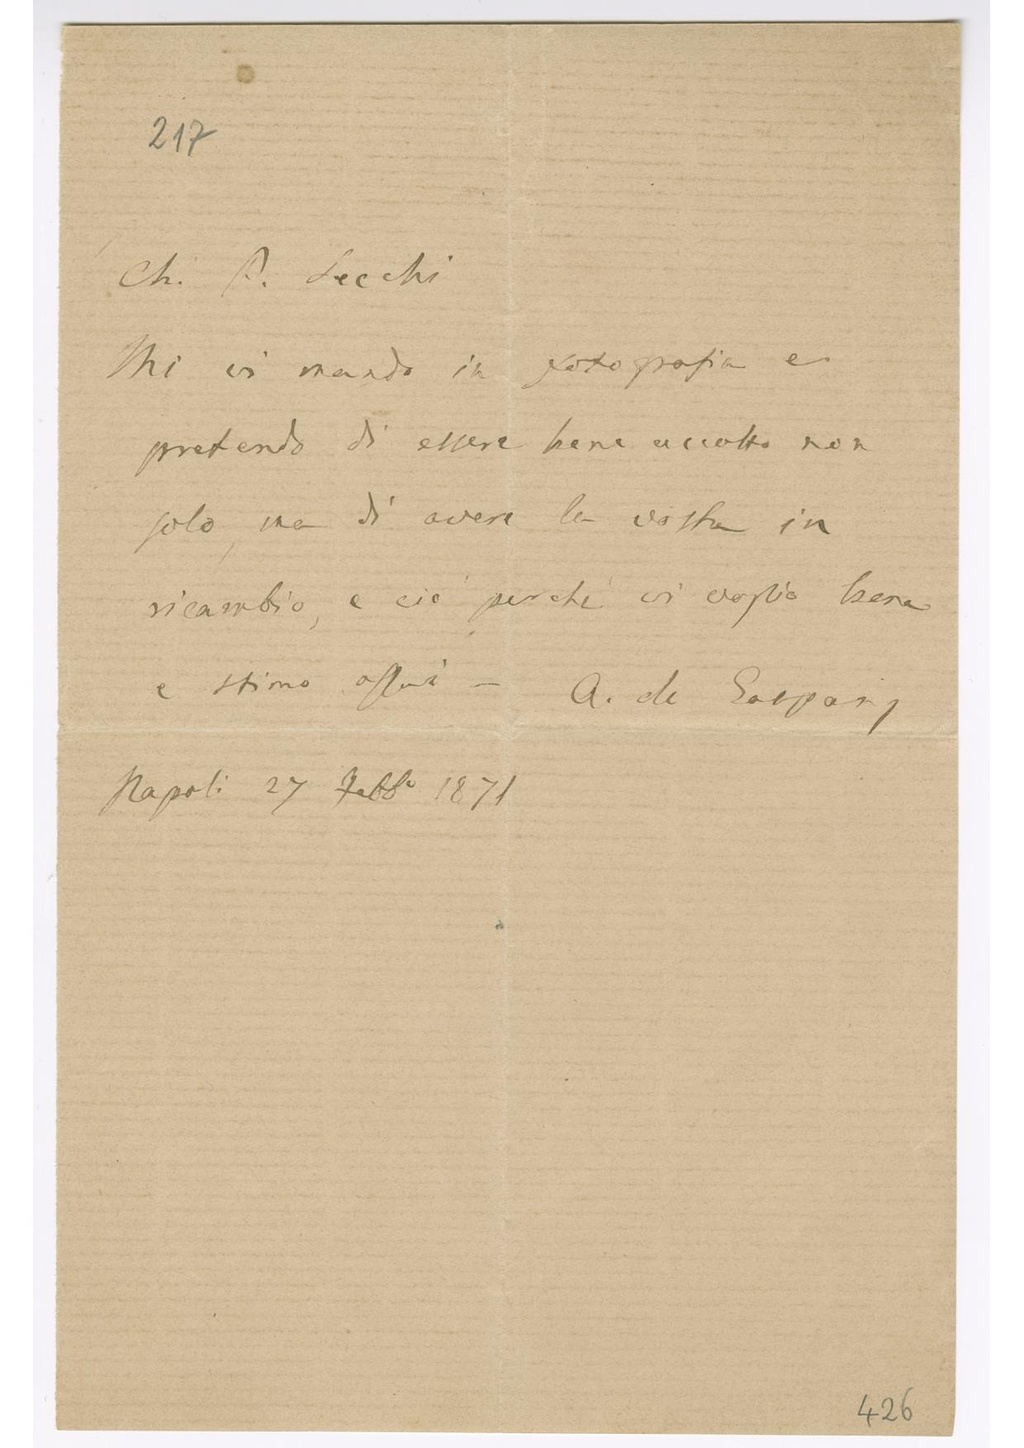 217
Ch. P. Secchi
Mi vi mando in fotografia e
pretendo di essere bene accolto non
solo, ma di avere la vostra in
ricambio, e ciò perchè vi voglio bene
e stimo assai — A. de Gasparis
Napoli 27 Febb.o 1871
426